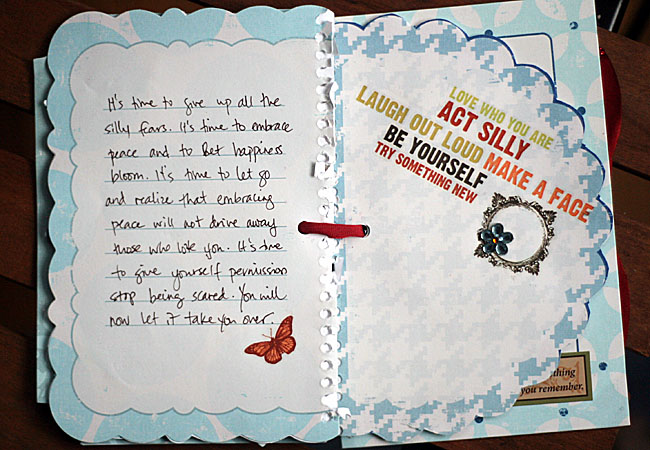 It's time to give up all the
silly fears. It's time to embrace
peace and to let happiness
bloom. It's time to let go
and realize that embracing
peace will not drive away
those who love you. It's time
to give yourself permission
stop being scared. You will
now let it take you over.
LOVE WHO YOU ARE
ACT SILLY
LAUGH OUT LOUD MAKE A FACE
BE YOURSELF
TRY SOMETHING NEW
thing
you remember.